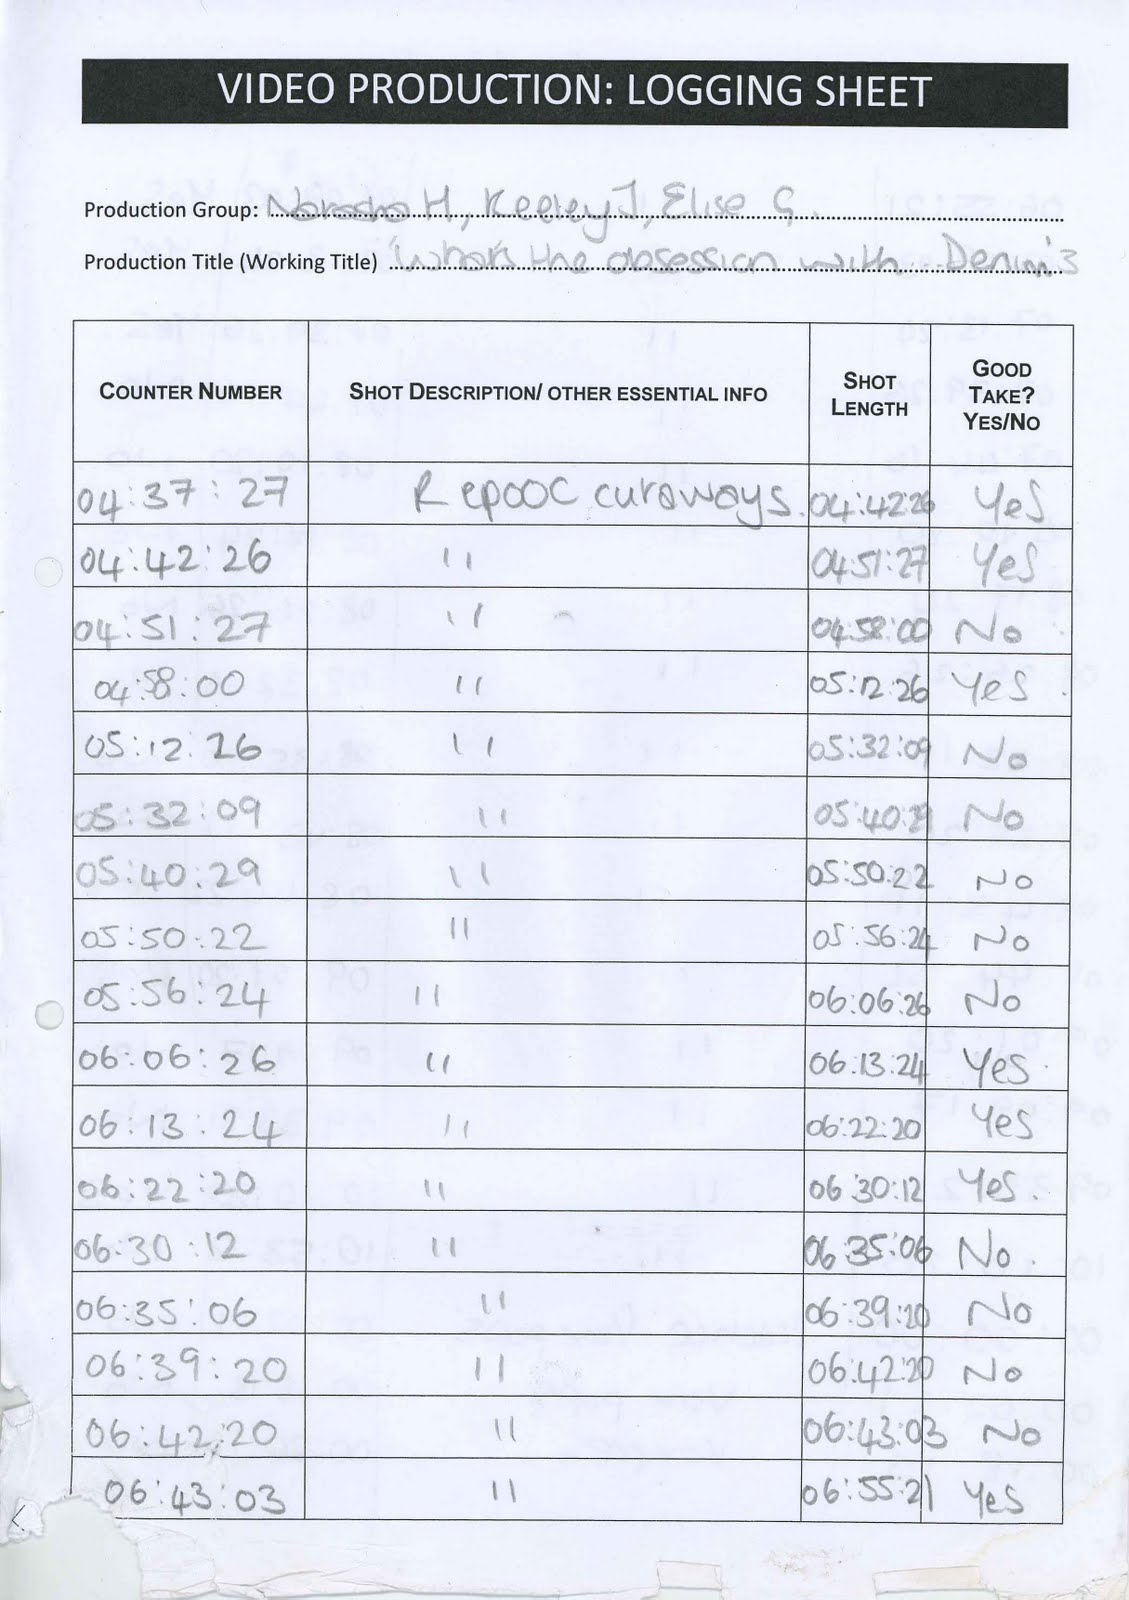 VIDEO PRODUCTION: LOGGING SHEET
Production Group: Natasha H, Keeley J, Elise G.
Production Title (Working Title) 'What's the obsession with Denim'?
COUNTER NUMBER SHOT DESCRIPTION/ OTHER ESSENTIAL INFO SHOT LENGTH GOOD TAKE? YES/NO
04:37:27 Repooc cutaways. 04:42:26 Yes
04:42:26 " 04:51:27 Yes
04:51:27 " 04:58:00 No
04:58:00 " 05:12:26 Yes
05:12:26 " 05:32:09 No
05:32:09 " 05:40:29 No
05:40:29 " 05:50:22 No
05:50:22 " 05:56:24 No
05:56:24 " 06:06:26 No
06:06:26 " 06:13:24 Yes
06:13:24 " 06:22:20 Yes
06:22:20 " 06:30:12 Yes
06:30:12 " 06:35:06 No
06:35:06 " 06:39:20 No
06:39:20 " 06:42:20 No
06:42:20 " 06:43:03 No
06:43:03 " 06:55:21 Yes